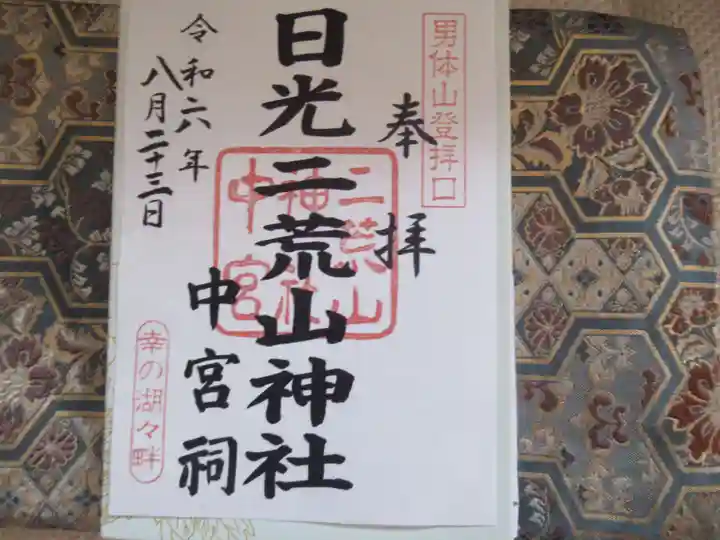 男体山登拝口
奉拝
日光二荒山神社
中宮祠
二荒山
神社
中宮
令和六年
八月二十三日
幸の湖々畔